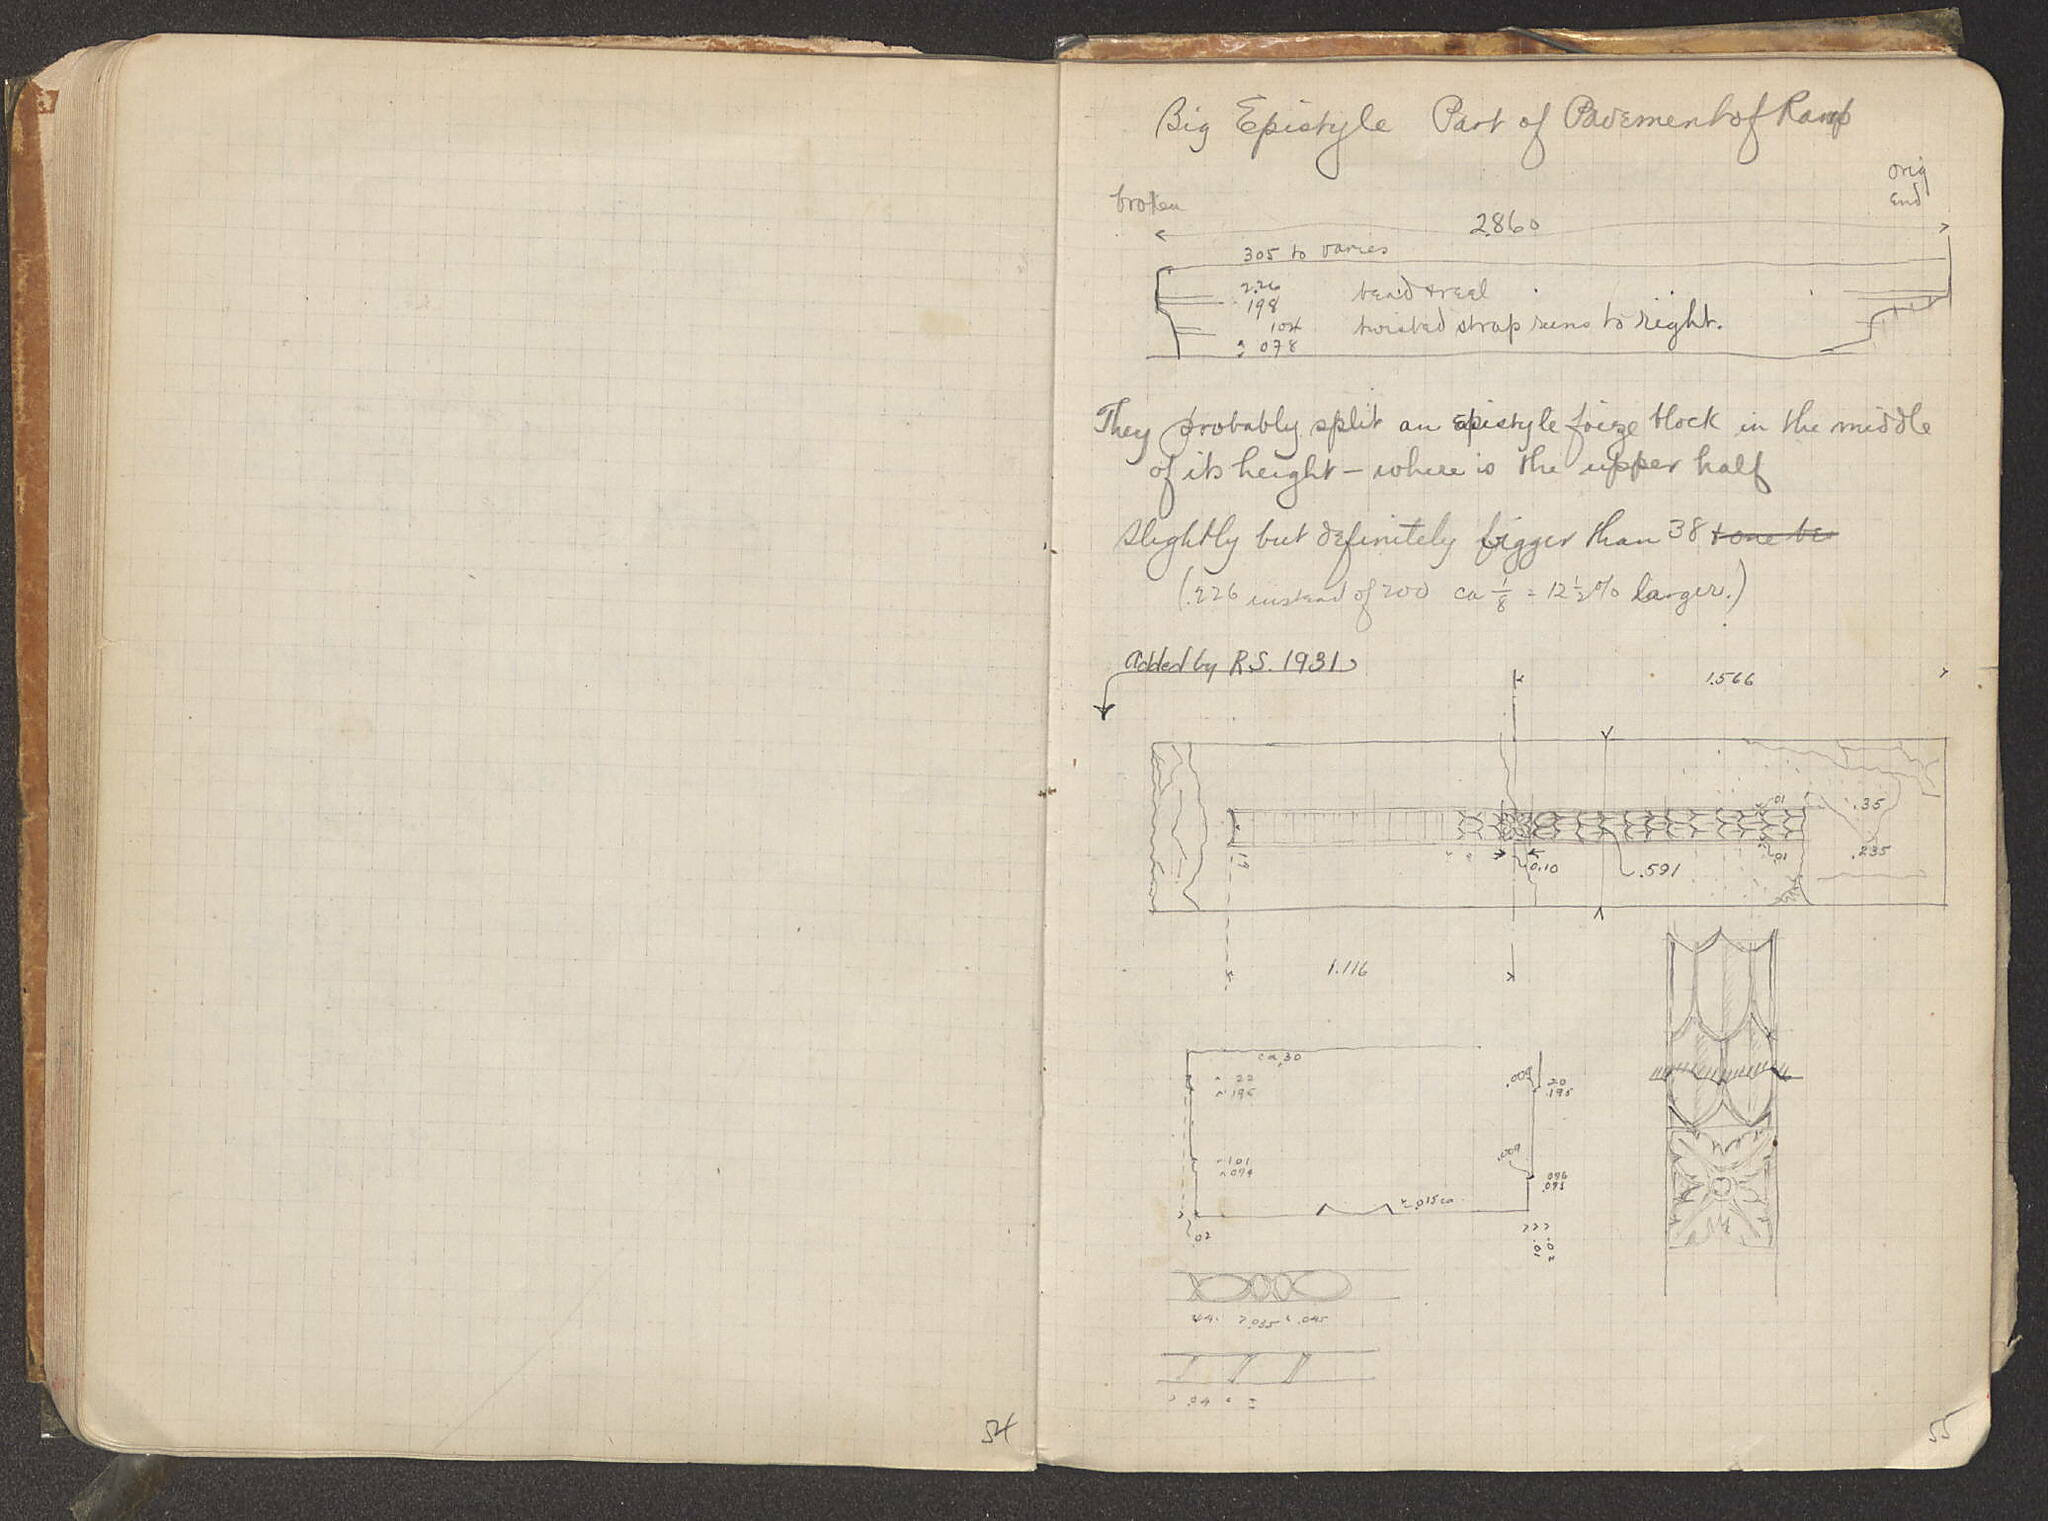 Big Epistyle Part of Pavement of Ramp
orig
End
broken
2.860
305 to varies
2.26
198
bead & reel
104
twisted strap runs to right.
078
They probably split an Epistyle frieze block in the middle
of its height — where is the upper half
slightly but definitely bigger than 38
(.226 instead of 200 ca 1/8 = 12 1/2 % larger.)
Added by R.S. 1931
1.566
.01
.35
.235
.01
0.10
.591
.19
1.116
ca .30
22
195
.009
20
.195
101
074
.009
076
.071
.015 ca
.02
.035 .045
.04
54
55